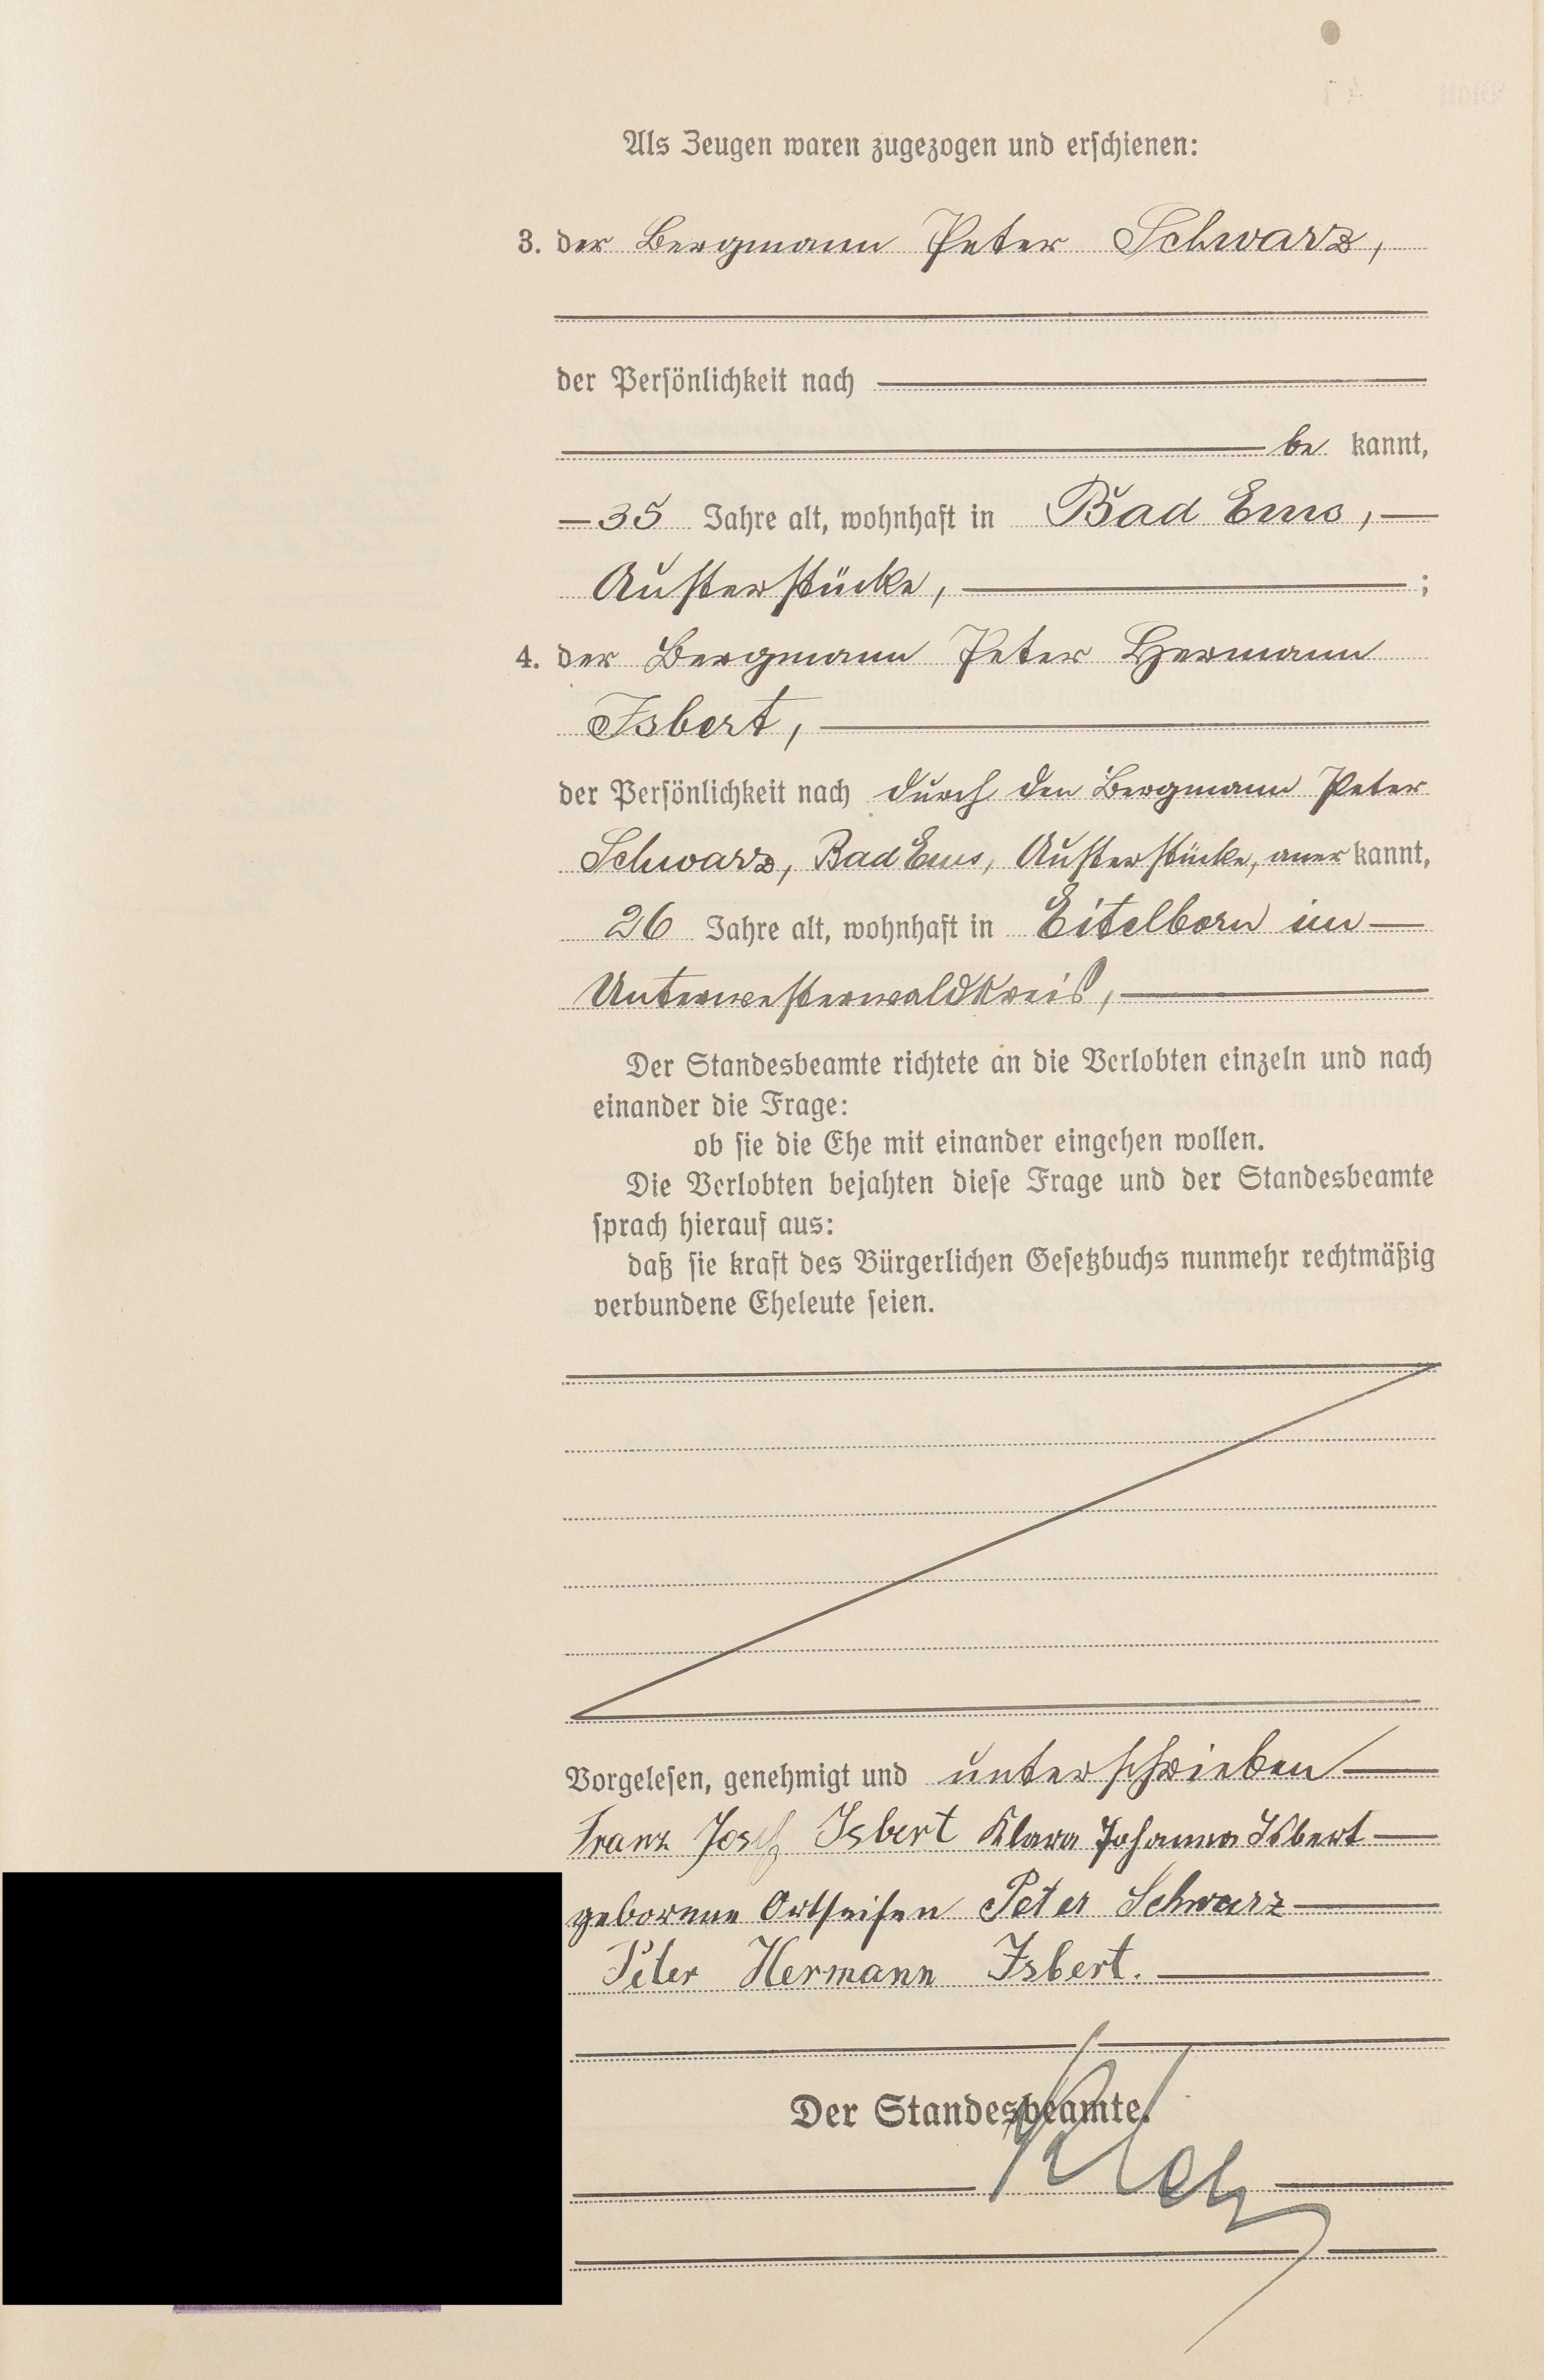 Als Zeugen waren zugezogen und erschienen:
3. der Bergmann Peter Schwarz,
der Persönlichkeit nach
be kannt,
35 Jahre alt, wohnhaft in Bad Ems,
Austerstücke, ;
4. der Bergmann Peter Hermann
Isbert,
der Persönlichkeit nach durch den Bergmann Peter
Schwarz, Bad Ems, Austerstücke, aner kannt,
26 Jahre alt, wohnhaft in Eitelborn im
Unterwesterwaldkreis,
Der Standesbeamte richtete an die Verlobten einzeln und nach
einander die Frage:
ob sie die Ehe mit einander eingehen wollen.
Die Verlobten bejahten diese Frage und der Standesbeamte
sprach hierauf aus:
daß sie kraft des Bürgerlichen Gesetzbuchs nunmehr rechtmäßig
verbundene Eheleute seien.
Vorgelesen, genehmigt und unterschrieben
Franz Josef Isbert Klara Johanna Isbert
geborene Ortseifen Peter Schwarz
Peter Hermann Isbert.
Der Standesbeamte.